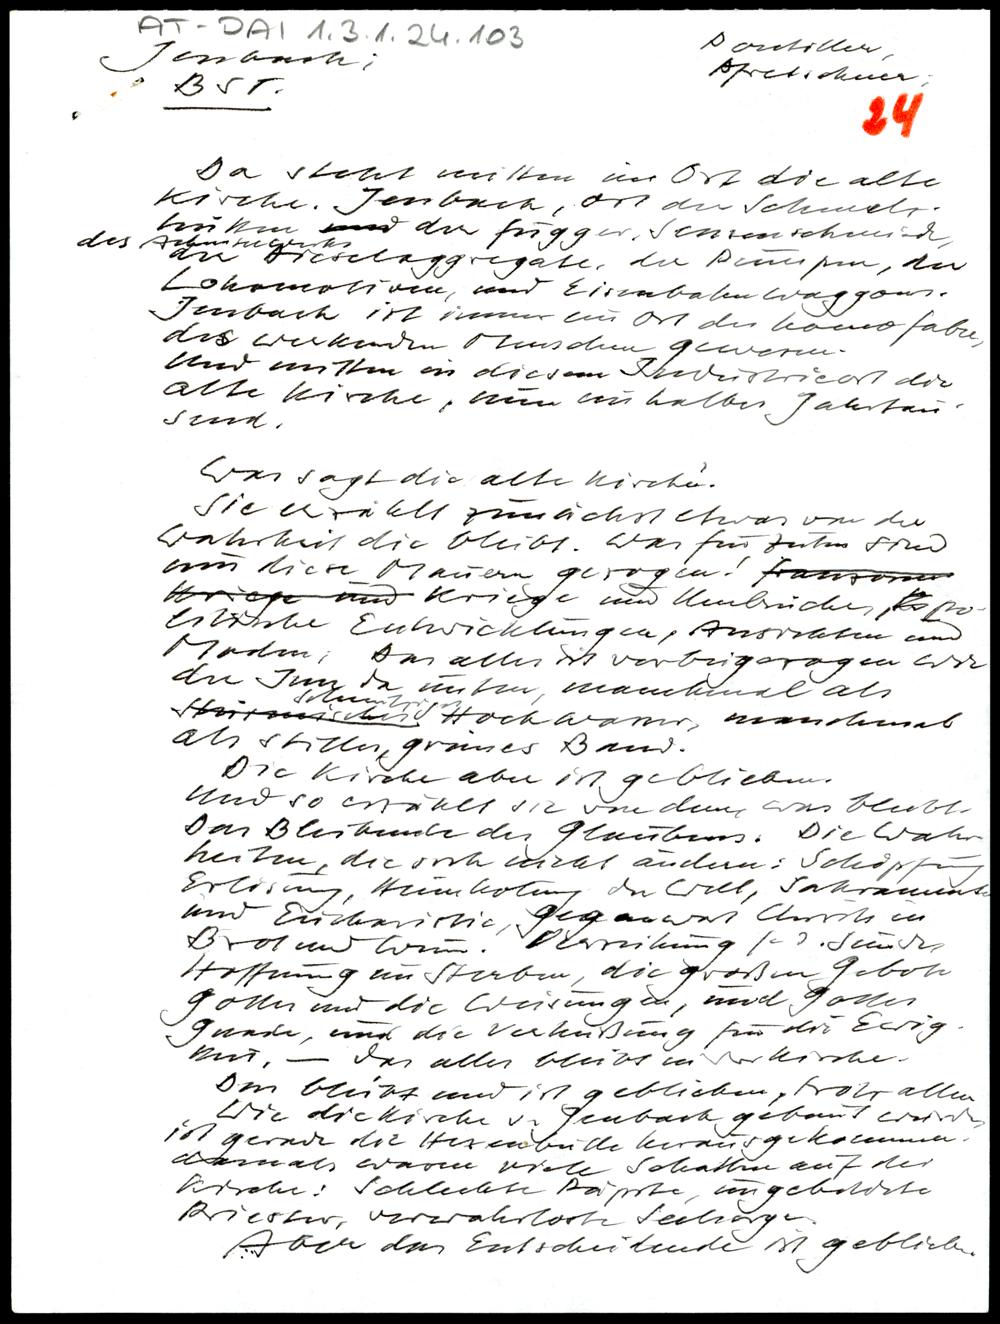 AT-DAI 1.3.1.24.103
Jenbach;
BST.
24
Da steht mitten im Ort die alte
Kirche. Jenbach, Ort der Schmelz-
hütten und der Fugger, Sensenschmiede,
des Achenseewerks
der Dieselaggregate, der Pumpen, der
Lokomotiven, und Eisenbahnwaggons.
Jenbach ist immer ein Ort des homo faber,
des werkenden Menschen gewesen.
Und mitten in diesem Industrieort die
alte Kirche, nun ein halbes Jahrtau-
send.
Was sagt die alte Kirche.
Sie erzählt zunächst etwas von der
Wahrheit die bleibt. Was für Zeiten sind
um diese Mauern gezogen!
Kriege und Kriege und Umbrüche, po-
litische Entwicklungen, Ansichten und
Moden; Das alles ist vorbeigezogen wie
der Inn da unten, manchmal als
schmutziges
stürmisches Hochwasser, manchmal
als stilles, grünes Band.
Die Kirche aber ist geblieben.
Und so erzählt sie von dem, was bleibt.
Das Bleibende des Glaubens. Die Wahr-
heiten, die sich nicht ändern: Schöpfung
Erlösung, Heimholung der Welt, Sakramente
und Eucharistie, Gegenwart Christi in
Brot und Wein. Verzeihung der Sünden,
Hoffnung im Sterben, die großen Gebote
Gottes und die Weisungen, und Gottes
Gnade, und die Verheißung für die Ewig-
keit, – das alles bleibt in der Kirche.
Das bleibt und ist geblieben, trotz allem
Wie die Kirche in Jenbach gebaut wurde,
ist gerade die Hexenbulle herausgekommen.
damals waren viele Schatten auf der
Kirche: Schlechte Päpste, ungebildete
Priester, verwahrloste Seelsorge.
Aber das Entscheidende ist geblieben.